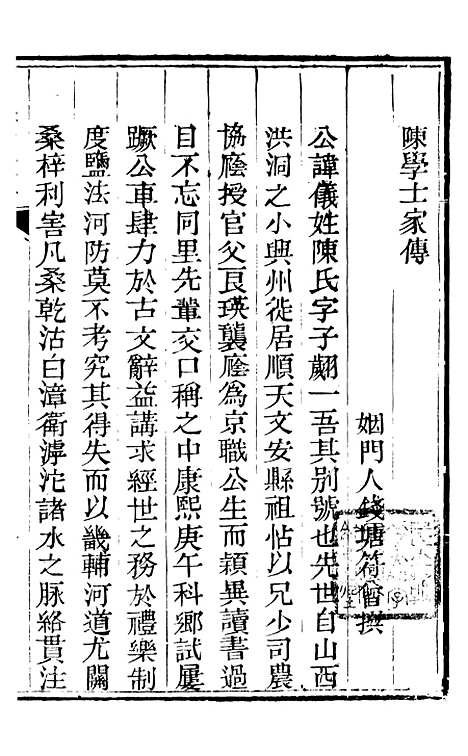 陳學士家傳
姻門人錢塘符曾撰
公諱儀姓陳氏字子翽一吾其別號也先世自山西
洪洞之小興州徙居順天文安縣祖怗以兄少司農
協廕授官父艮瑛襲廕為京職公生而穎異讀書過
目不忘同里先輩交口稱之中康熙庚午科鄉試屢
蹶公車肆力於古文辭益講求經世之務於禮樂制
度鹽法河防莫不考究其得失而以畿輔河道尤關
桑梓利害凡桑乾沽白漳衛滹沱諸水之脉絡貫注